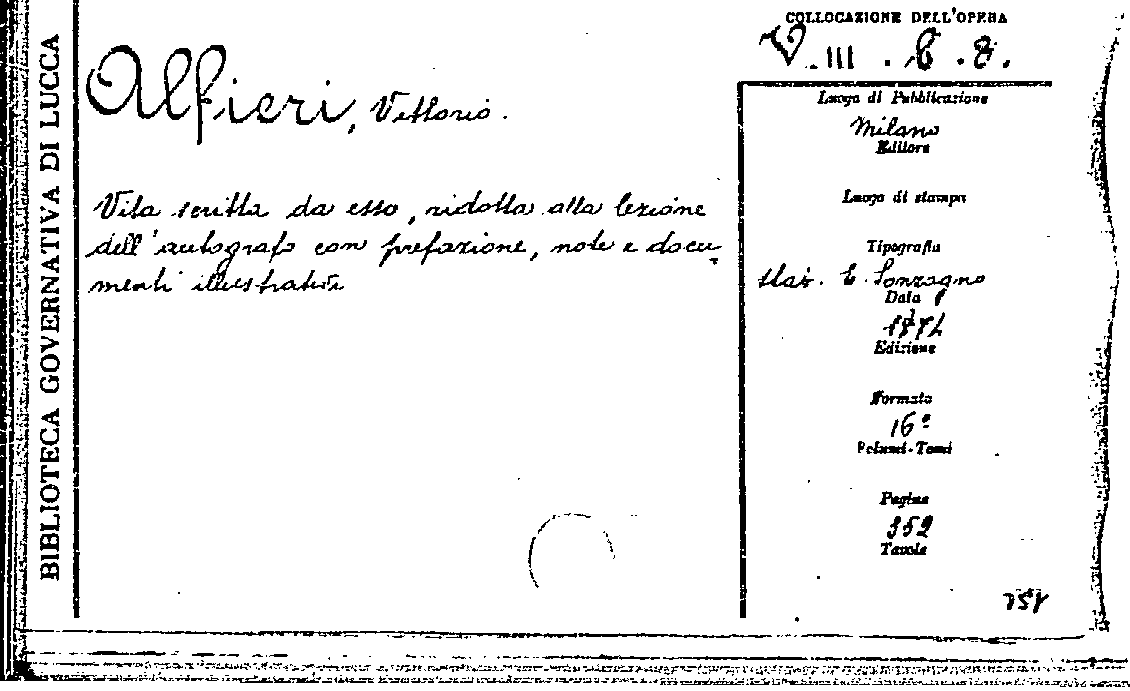 BIBLIOTECA GOVERNATIVA DI LUCCA
COLLOCAZIONE DELL'OPERA
V. III . 6 . 8 .
Alfieri, Vittorio.
Vita scritta da esso, ridotta alla lezione
dell'autografo con prefazione, note e docu-
menti illustrativi
Luogo di Pubblicazione
Milano
Editore
Luogo di stampa
Tipografia
Stab. E. Sonzogno
Data
Edizione
Formato
16º
Volumi-Tomi
Pagine
352
Tavole